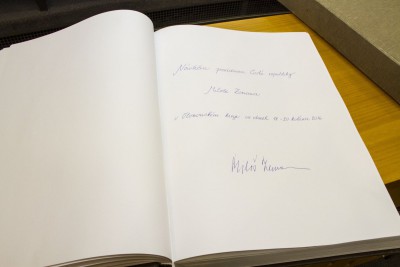 Návštěva prezidenta České republiky
Miloše Zemana
v kraji ve dnech
Miloš Zeman